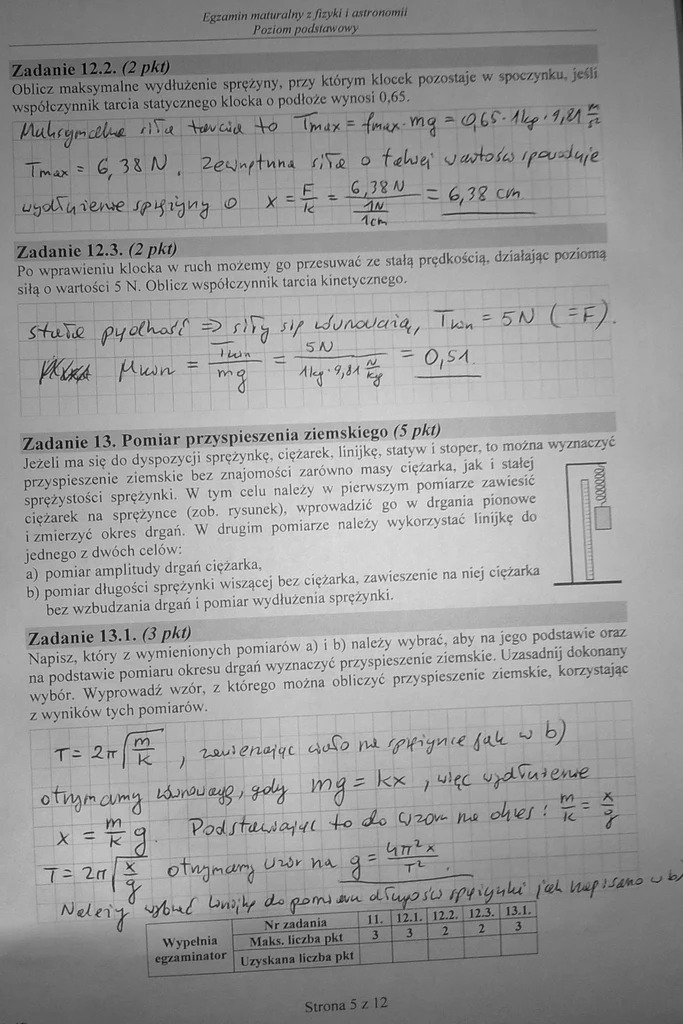 Egzamin maturalny z fizyki i astronomii
Poziom podstawowy
Zadanie 12.2. (2 pkt)
Oblicz maksymalne wydłużenie sprężyny, przy którym klocek pozostaje w spoczynku, jeśli
współczynnik tarcia statycznego klocka o podłoże wynosi 0,65.
Maksymalna siła tarcia to Tmax = fmax·mg = 0,65·1kg·9,81 m/s²
Tmax = 6,38 N. Zewnętrzna siła o takiej wartości spowoduje
wydłużenie sprężyny o x = F/k = 6,38 N / 1N/1cm = 6,38 cm
Zadanie 12.3. (2 pkt)
Po wprawieniu klocka w ruch możemy go przesuwać ze stałą prędkością, działając poziomą
siłą o wartości 5 N. Oblicz współczynnik tarcia kinetycznego.
stała prędkość => siły się równoważą, Tkin = 5N (=F).
μkin = Tkin/mg = 5N / 1kg·9,81 N/kg = 0,51.
Zadanie 13. Pomiar przyspieszenia ziemskiego (5 pkt)
Jeżeli ma się do dyspozycji sprężynkę, ciężarek, linijkę, statyw i stoper, to można wyznaczyć
przyspieszenie ziemskie bez znajomości zarówno masy ciężarka, jak i stałej
sprężystości sprężynki. W tym celu należy w pierwszym pomiarze zawiesić
ciężarek na sprężynce (zob. rysunek), wprowadzić go w drgania pionowe
i zmierzyć okres drgań. W drugim pomiarze należy wykorzystać linijkę do
jednego z dwóch celów:
a) pomiar amplitudy drgań ciężarka,
b) pomiar długości sprężynki wiszącej bez ciężarka, zawieszenie na niej ciężarka
bez wzbudzania drgań i pomiar wydłużenia sprężynki.
Zadanie 13.1. (3 pkt)
Napisz, który z wymienionych pomiarów a) i b) należy wybrać, aby na jego podstawie oraz
na podstawie pomiaru okresu drgań wyznaczyć przyspieszenie ziemskie. Uzasadnij dokonany
wybór. Wyprowadź wzór, z którego można obliczyć przyspieszenie ziemskie, korzystając
z wyników tych pomiarów.
T = 2π√(m/k), zawieszając ciało na sprężynce jak w b)
otrzymamy równowagę, gdy mg = kx, więc wydłużenie
x = m/k g. Podstawiając to do wzoru na okres: m/k = x/g
T = 2π√(x/g) otrzymamy wzór na g = 4π²x/T².
Należy wybrać linijkę do pomiaru długości sprężynki jak napisano w b)
Wypełnia egzaminator Nr zadania 11. 12.1. 12.2. 12.3. 13.1.
Maks. liczba pkt 3 3 2 2 3
Uzyskana liczba pkt
Strona 5 z 12